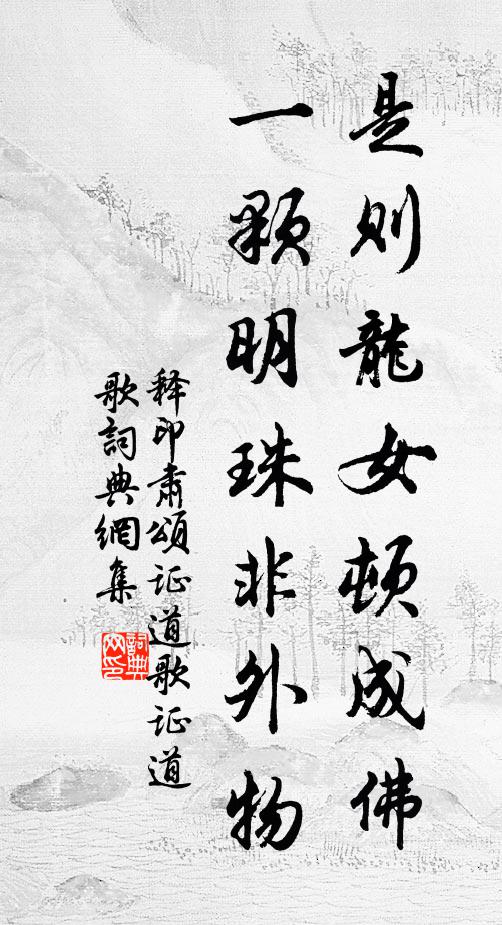 是则龍女頓成佛
一颗明珠非外物
释印肃頌证道歌证道
歌詞典網集